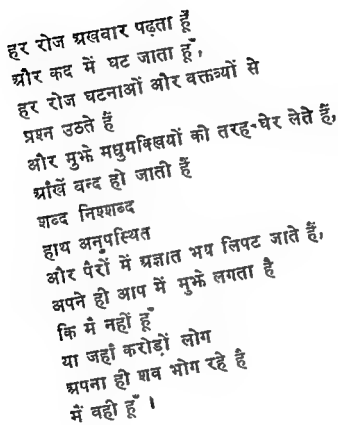 हर रोज अखबार पढ़ता हूँ
और कद में घट जाता हूँ,
हर रोज घटनाओं और वक्तव्यों से
प्रश्न उठते हैं
और मुझे मधुमक्खियों की तरह-घेर लेते हैं,
आँखें बन्द हो जाती हैं
शब्द निश्शब्द
हाथ अनुपस्थित
और पैरों में अज्ञात भय लिपट जाते हैं,
अपने ही आप में मुझे लगता है
कि मैं नहीं हूँ
या जहां करोड़ों लोग
अपना ही शव भोग रहे है
मैं वही हूँ ।